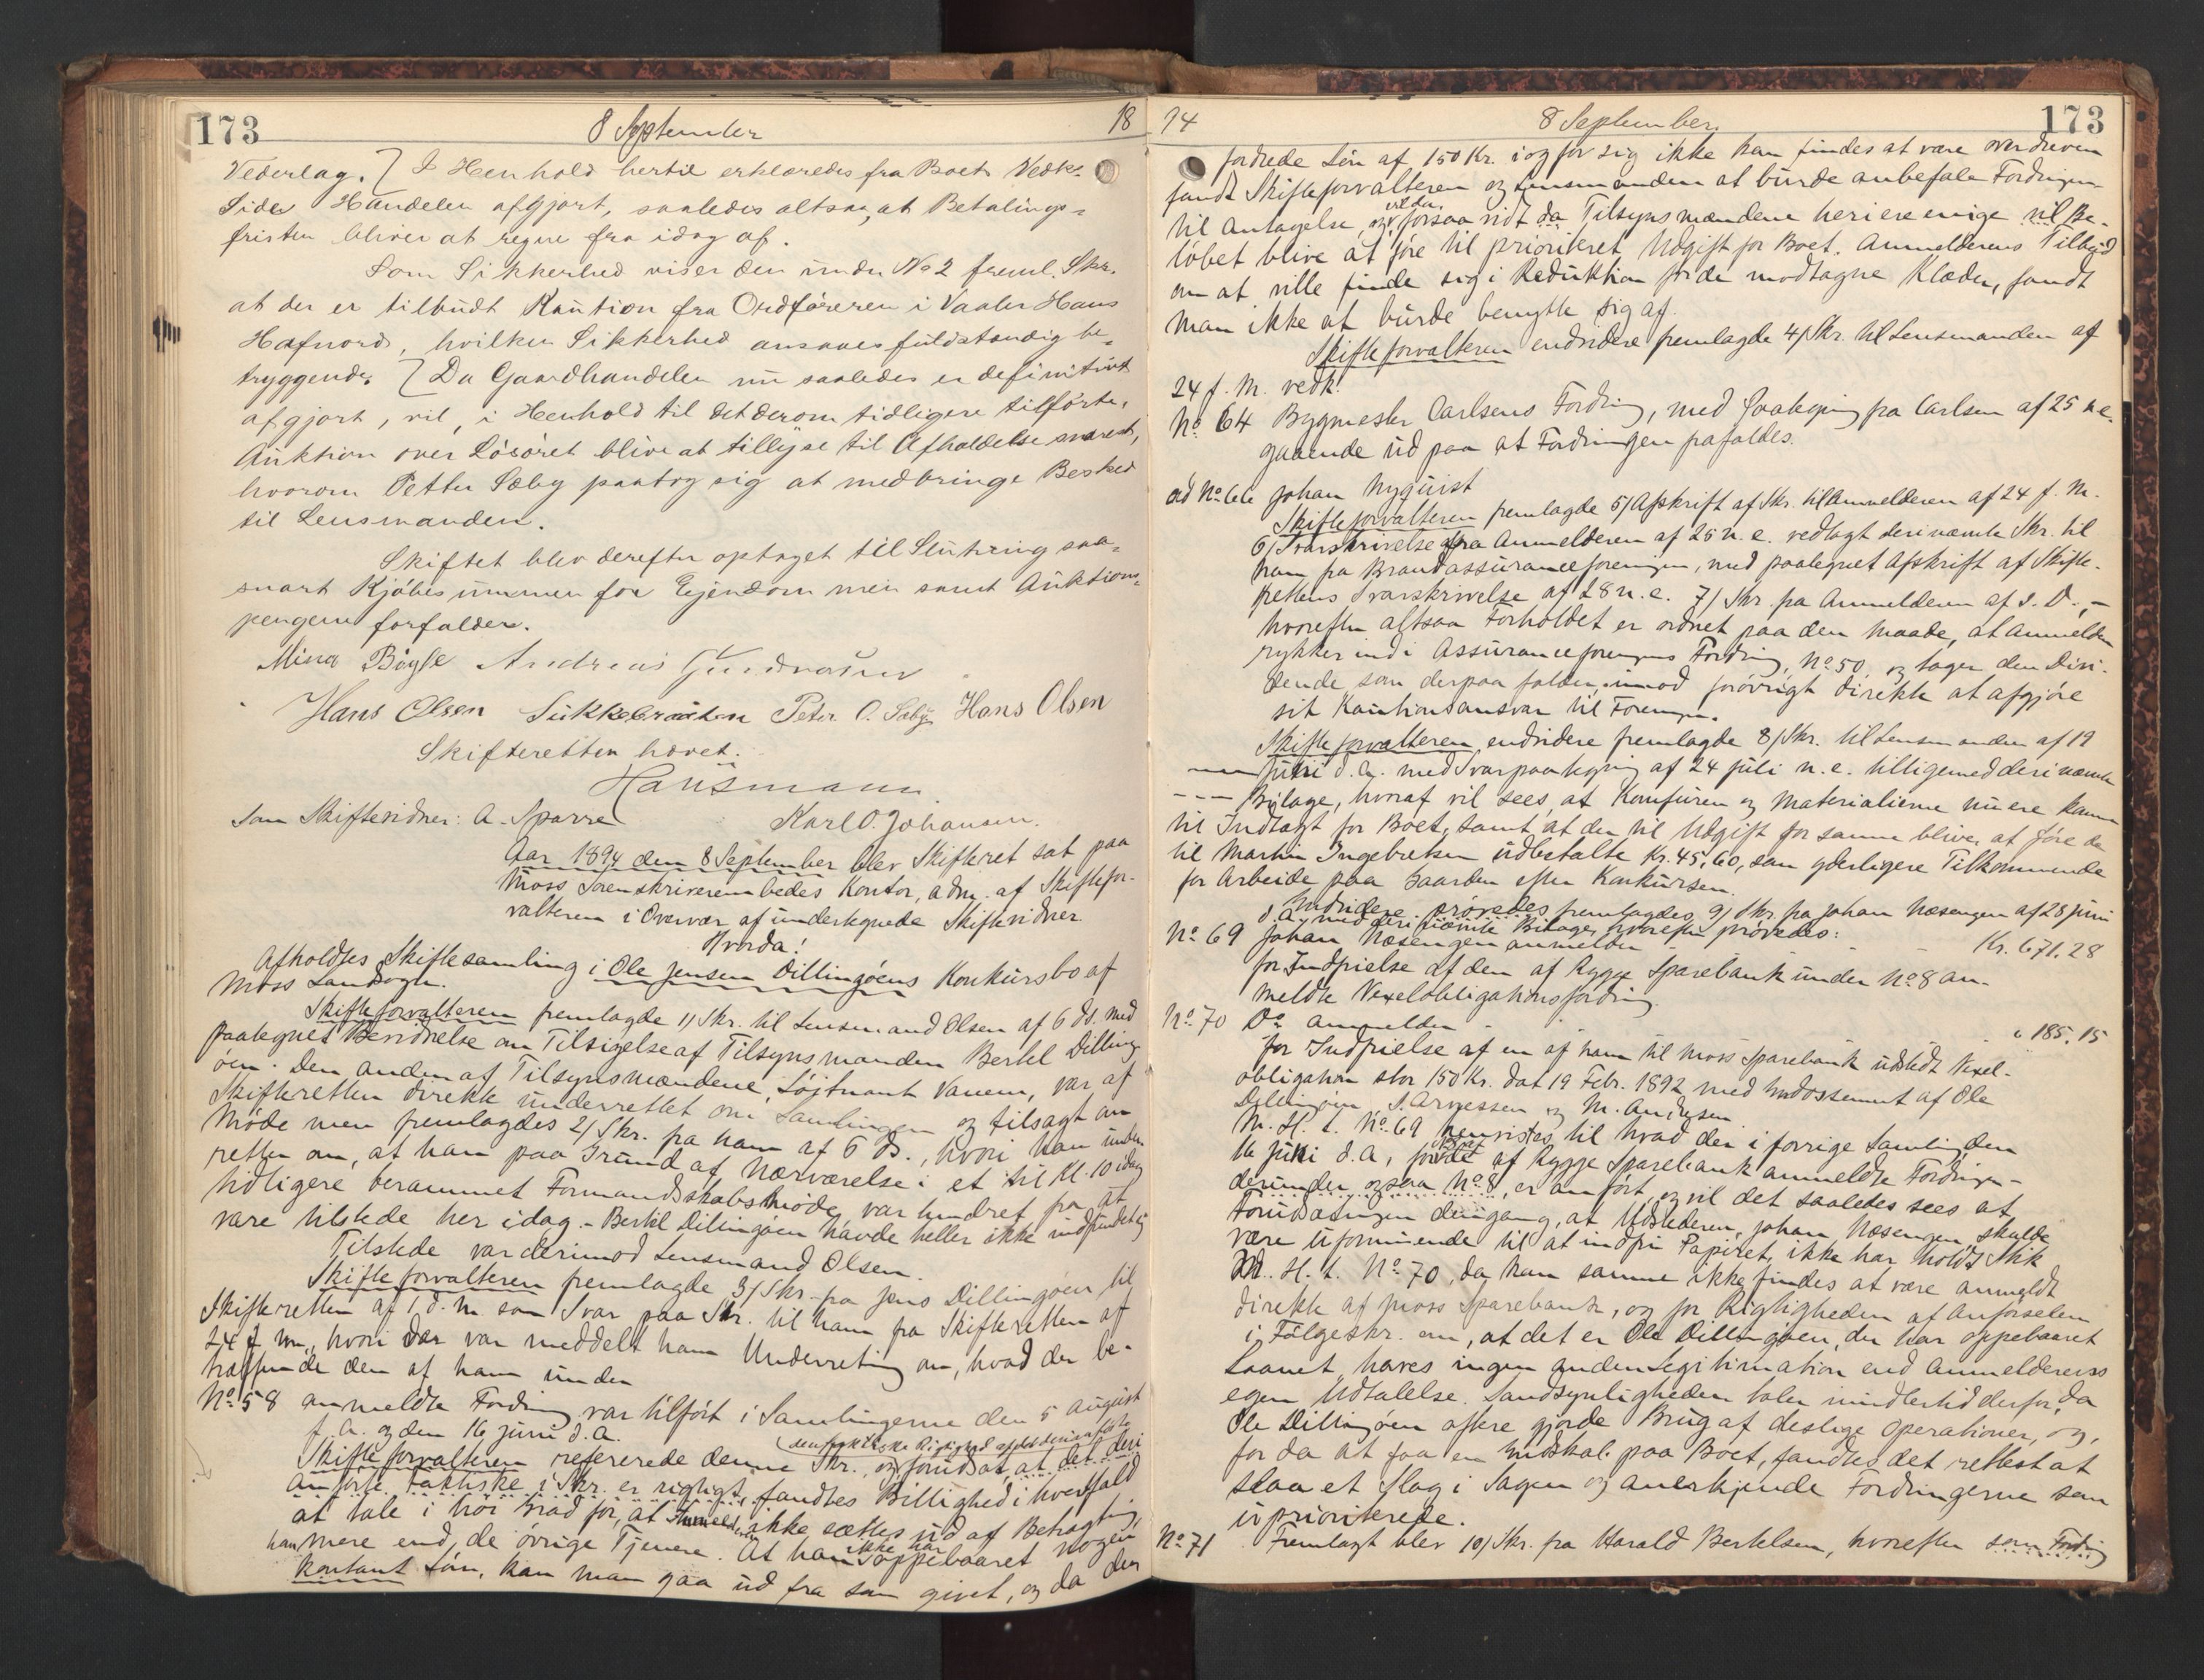 173
8 September
18
Vederlag. I Henhold hertil erklæredes fra Boets Vedk.
Side Handelen afgjort, saaledes altsaa, at Betalings-
fristen bliver at regne fra idag af.
Som Sikkerhed viser den under No 2 freml. Skr.
at der er tilbudt Kaution fra Ordføreren i Vaaler Hans
Hafnord, hvilken Sikkerhed ansaaes fuldstændig be-
tryggende. Da Gaardhandelen nu saaledes er definitivt
afgjort, vil, i Henhold til det derom tidligere tilførte,
Auktion over Løsøret blive at tillyse til Afholdelse snarest,
hvorom Petter Sæby paatog sig at medbringe Besked
til Lensmanden.
Skiftet blev derefter optaget til Slutning saa-
snart Kjøbesummen for Eiendommen samt Auktions-
pengene forfalder.
Mina Bøgse Andreas Gundersen
Hans Olsen Sukkebraaten Peter O. Sæby Hans Olsen
Skifteretten hævet.
Hausmann
Som Skiftevidner: A. Sparre Karl O. Johansen.
Aar 1894 den 8 September blev Skifteret sat paa
Moss Sorenskriverembedes Kontor, adm. af Skiftefor-
valteren i Overvær af undertegnede Skiftevidner
Hvorda!
Afholdtes Skiftesamling i Ole Jensen Dillingøens Konkursbo af
Moss Landsogn.
Skifteforvalteren fremlagde 1/ Skr. til Lensmand Olsen af 6 ds. med
paategnet Bevidnelse om Tilsigelse af Tilsynsmanden Bertel Dilling-
øen. Den anden af Tilsynsmændene, Løjtnant Vanem, var af
Skifteretten direkte underrettet om Samlingen og tilsagt om
Møde men fremlagdes 2/ Skr. fra ham af 6 ds., hvori han under-
retter om, at han paa Grund af Nærværelse i et til Kl. 10 idag
tidligere berammet Formandskabsmøde var hindret fra at
være tilstede her idag. - Bertel Dillingøen havde heller ikke indfundet sig
Tilstede var derimod Lensmand Olsen.
Skifteforvalteren fremlagde 3/ Skr. fra Jens Dillingøen til
Skifteretten af 1. d. M. som Svar paa Skr. til ham fra Skifteretten af
24 f. M., hvori der var meddelt ham Underretning om, hvad der be-
træffende den af ham under
No 58 anmeldte Fordring var tilført i Samlingerne den 5 August
f. A. og den 16 Juni d. A.
Skifteforvalteren refererede denne Skr., og forudsat, at det deri
anførte faktiske i Skr. er rigtigt, fandtes Billighed i hvertfald
at tale i høi Grad for, at Anmelderen ikke sættes ud af Betragtning,
han mere end de øvrige Tjenere. At han ikke har oppebaaret nogen
kontant Løn, kan man gaa ud fra som givet, og da den
94
8 September.
173
fordrede Løn af 150 Kr. i og for sig ikke kan findes at være overdreven
fandt Skifteforvalteren og Lensmanden at burde anbefale Fordringen
til Antagelse, og vil da, forsaavidt da Tilsynsmændene heri ere enige vil Be-
løbet blive at føre til prioriteret Udgift for Boet. Anmelderens Tilbud
om at ville finde sig i Reduktion for de modtagne Klæder, fandt
man ikke at burde benytte sig af.
Skifteforvalteren endvidere fremlagde 4/ Skr. til Lensmanden af
24 f. M. vedk.
No 64 Bygmester Carlsens Fordring, med Paategning fra Carlsen af 25 n. e.
gaaende ud paa at Fordringen frafaldes.
ad No 66 Johan Nyquist
Skifteforvalteren fremlagde 5/ Afskrift af Skr. til Anmelderen af 24 f. M.
6/ Svarskrivelse fra Anmelderen af 25 n. e. vedlagt deri nævnte Skr. til
ham fra Brandassuranceforeningen, med paategnet Afskrift af Skifte-
rettens Svarskrivelse af 28 n. e. 7/ Skr. fra Anmelderen af s. D., -
hvorefter altsaa Forholdet er ordnet paa den Maade, at Anmelderen
rykker ind i Assuranceforeningens Fordring, No 50, og tager den Divi-
dende som derpaa falder, imod forøvrigt direkte at afgjøre
sit Kautionsansvar til Foreningen.
Skifteforvalteren endvidere fremlagde 8/ Skr. til Lensmanden af 19
Juni d. A. med Svarpaategning af 24 Juli n. e. tilligemed deri nævnte
Bilage, hvoraf vil sees, at Komfuren og Materialierne nu ere komne
til Indtægt for Boet, samt at der til Udgift for samme bliver at føre de
til Martin Ingebretsen udbetalte Kr. 45,60, som yderligere Tilkommende
for Arbeide paa Gaarden efter Konkursen.
Endvidere prøvedes fremlagdes 9/ Skr. fra Johan Næsengen af 28 Juni
d. A. med deri nævnte Bilage, hvorefter prøvedes:
No 69 Johan Næsengen anmelder - - - Kr. 671.28
for Indfrielse af den af Rygge Sparebank under No 8 an-
meldte Vexelobligationsfordring.
No 70 Do anmelder - - " 185,15
for Indfrielse af en af ham til Moss Sparebank udstedt Vexel-
obligation stor 150 Kr. dat. 19 Febr. 1892 med Endossement af Ole
Dillingøen, S. Arvessen og M. Andersen
M. H. t. No 69 henvistes til hvad der i forrige Samling, den
16 Juni d. A., hvad af Rygge Sparebank anmeldte Fordringer -
derunder ogsaa No 8, er anført, og vil det saaledes sees at
Forudsætningen dengang, at Udstederen, Johan Næsengen, skulde
være uformuende til at indfri Papiret, ikke har holdt Stik
M. H. t. No 70, da kan samme ikke findes at være anmeldt
direkte af Moss Sparebank, og for Rigtigheden af Anførselen
i Følgeskr. om, at det er Ole Dillingøen, der har oppebaaret
Laanet, haves ingen anden Legitimation end Anmelderens
egen Udtalelse. Sandsynligheden taler imidlertid derfor, da
Ole Dillingøen oftere gjorde Brug af deslige Operationer, og,
for da at faa en Endskab paa Boet, fandtes det rettest at
slaa et Slag i Sagen og anerkjende Fordringerne som
uprioriterede.
No 71 Fremlagt blev 10/ Skr. fra Harald Bertelsen, hvorefter som Fordring